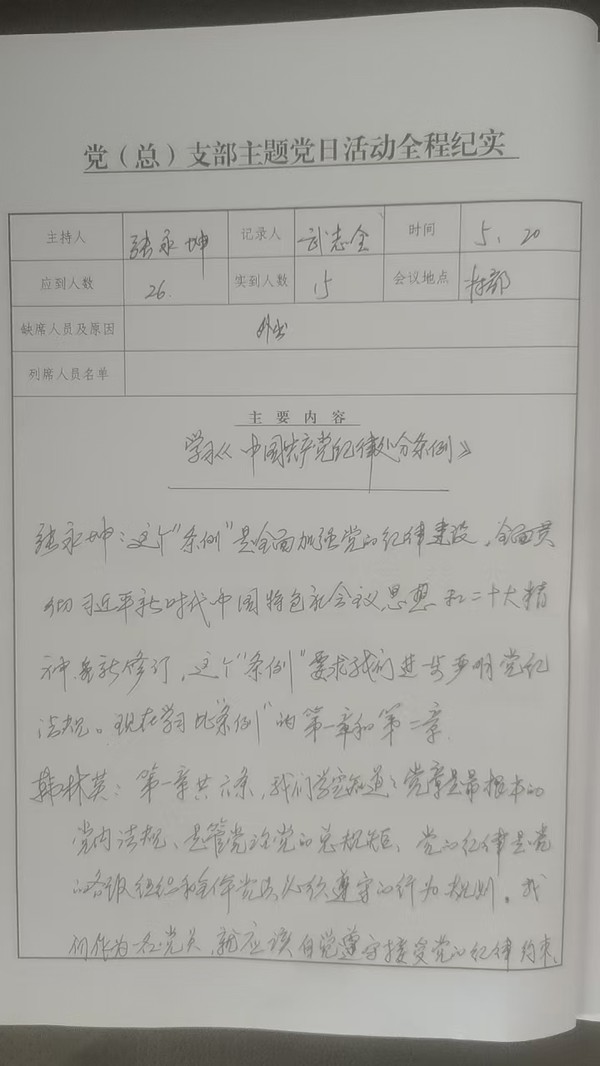 党（总）支部主题党日活动全程纪实
主持人 张永坤 记录人 武志全 时间 5、20
应到人数 26 实到人数 15 会议地点 村部
缺席人员及原因 外出
列席人员名单
主要内容
学习《中国共产党纪律处分条例》
张永坤：这个"条例"是全面加强党的纪律建设，全面贯
彻习近平新时代中国特色社会主义思想和二十大精
神重新修订，这个"条例"要求我们进一步严明党纪
法规。现在学习此"条例"的第一章和第二章
韩林英：第一章共六条，我们学完知道：党章是最根本的
党内法规、是管党治党的总规矩、党的纪律是党
的各级组织和全体党员必须遵守的行为规则。我
们作为一名党员，就应该自觉遵守接受党的纪律约束。